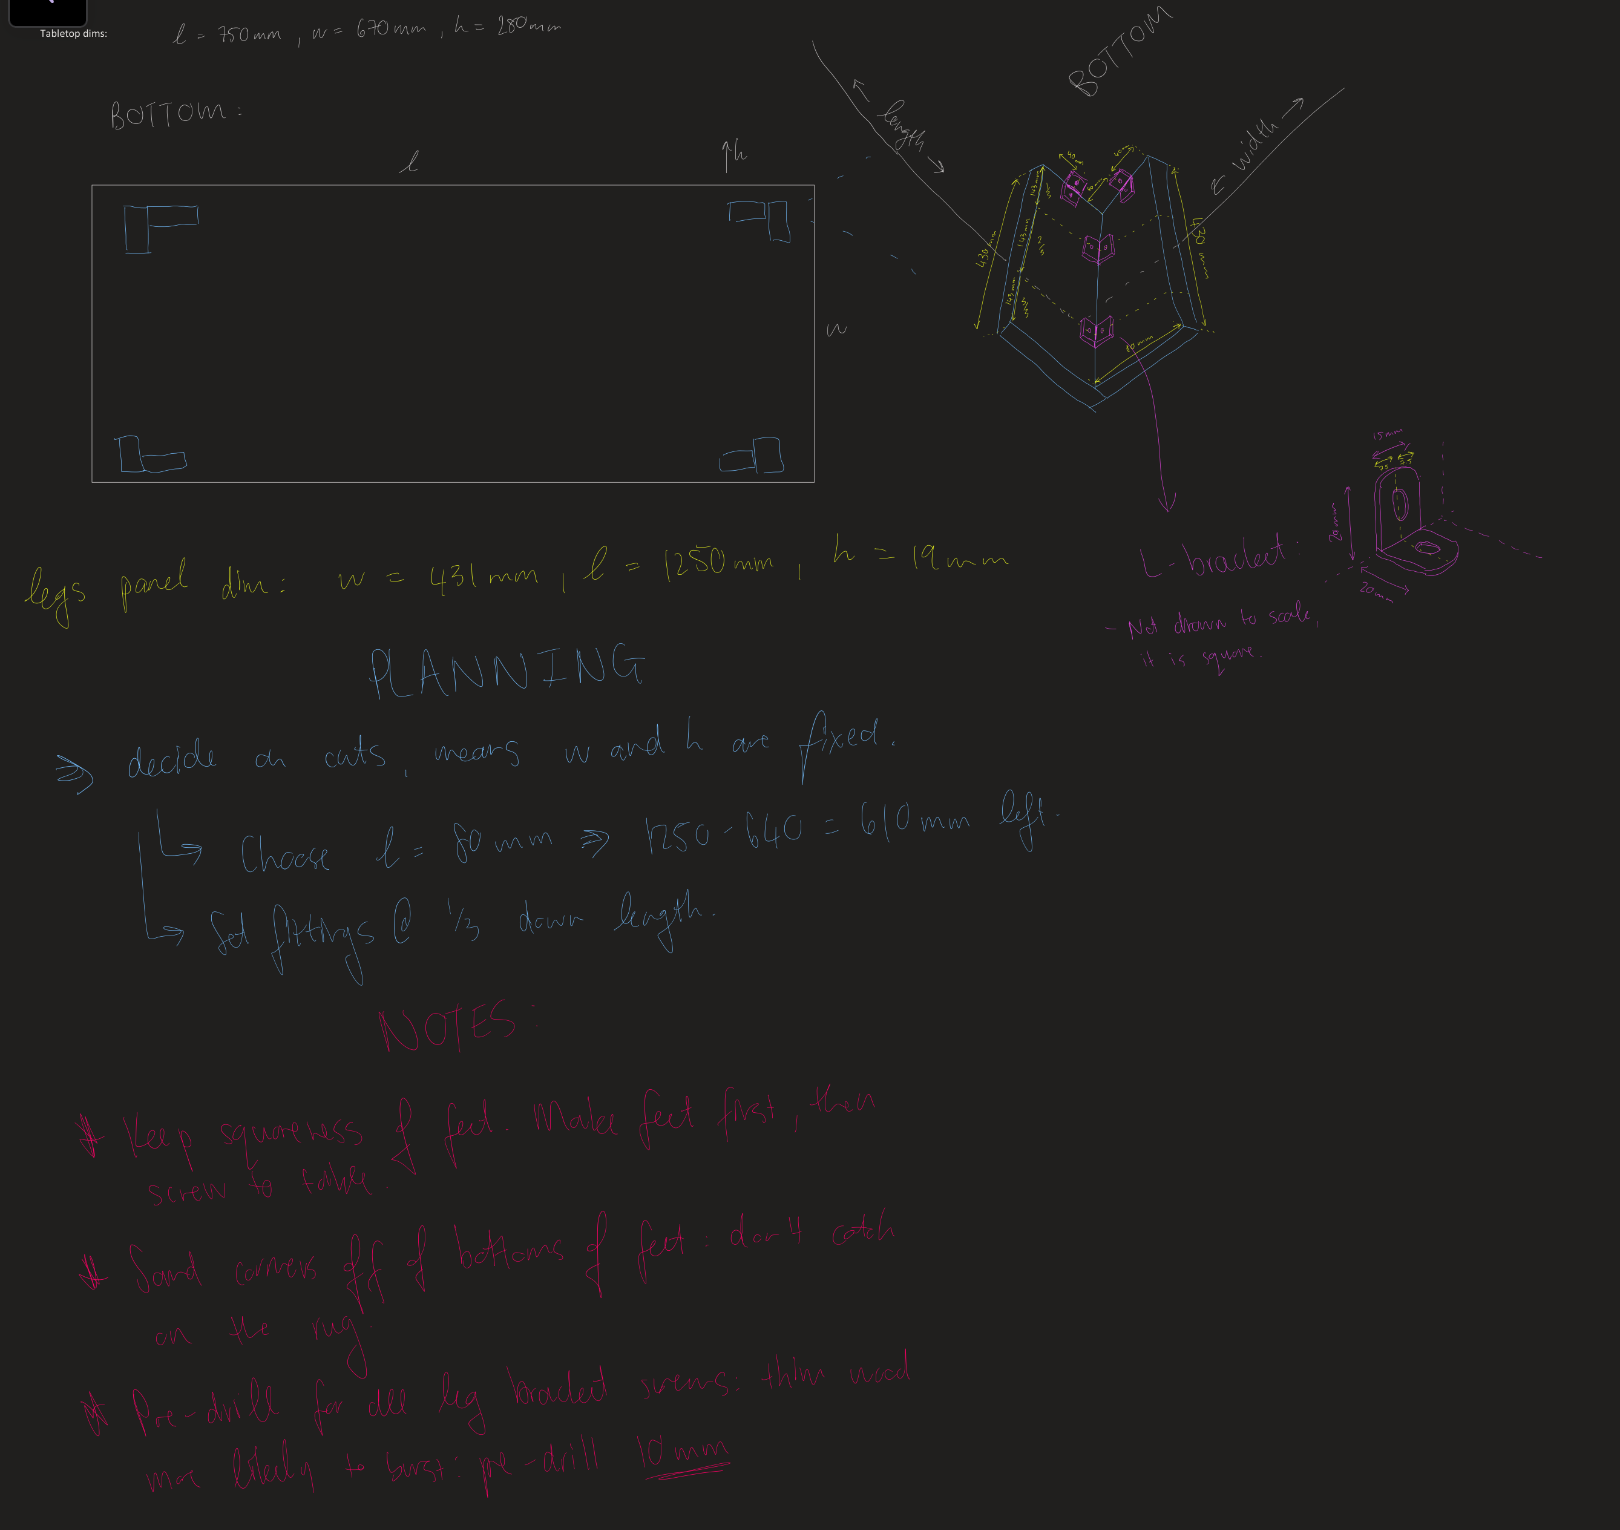 Tabletop dims:
l = 750mm, w = 670mm, h = 280mm
BOTTOM:
l
↑h
w
BOTTOM
← length →
← width →
40mm
40mm
430mm
143mm
143mm
143mm
430mm
80mm
15mm
7.5
7.5
20mm
20mm
L-bracket:
- Not drawn to scale,
it is square.
legs panel dim: w = 431mm, l = 1250mm, h = 19mm
PLANNING
⇒ decide on cuts, means w and h are fixed.
↳ Choose l = 80mm ⇒ 1250-640 = 610mm left.
↳ Set fittings @ 1/3 down length.
NOTES:
* Keep squareness of feet. Make feet first, then
screw to table.
* Sand corners off of bottoms of feet: don't catch
on the rug.
* Pre-drill for all leg bracket screws: thin wood
more likely to burst: pre-drill 10mm